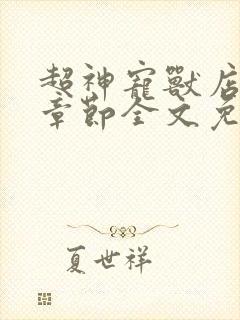 超神宠兽店
章节全文免
夏世祥